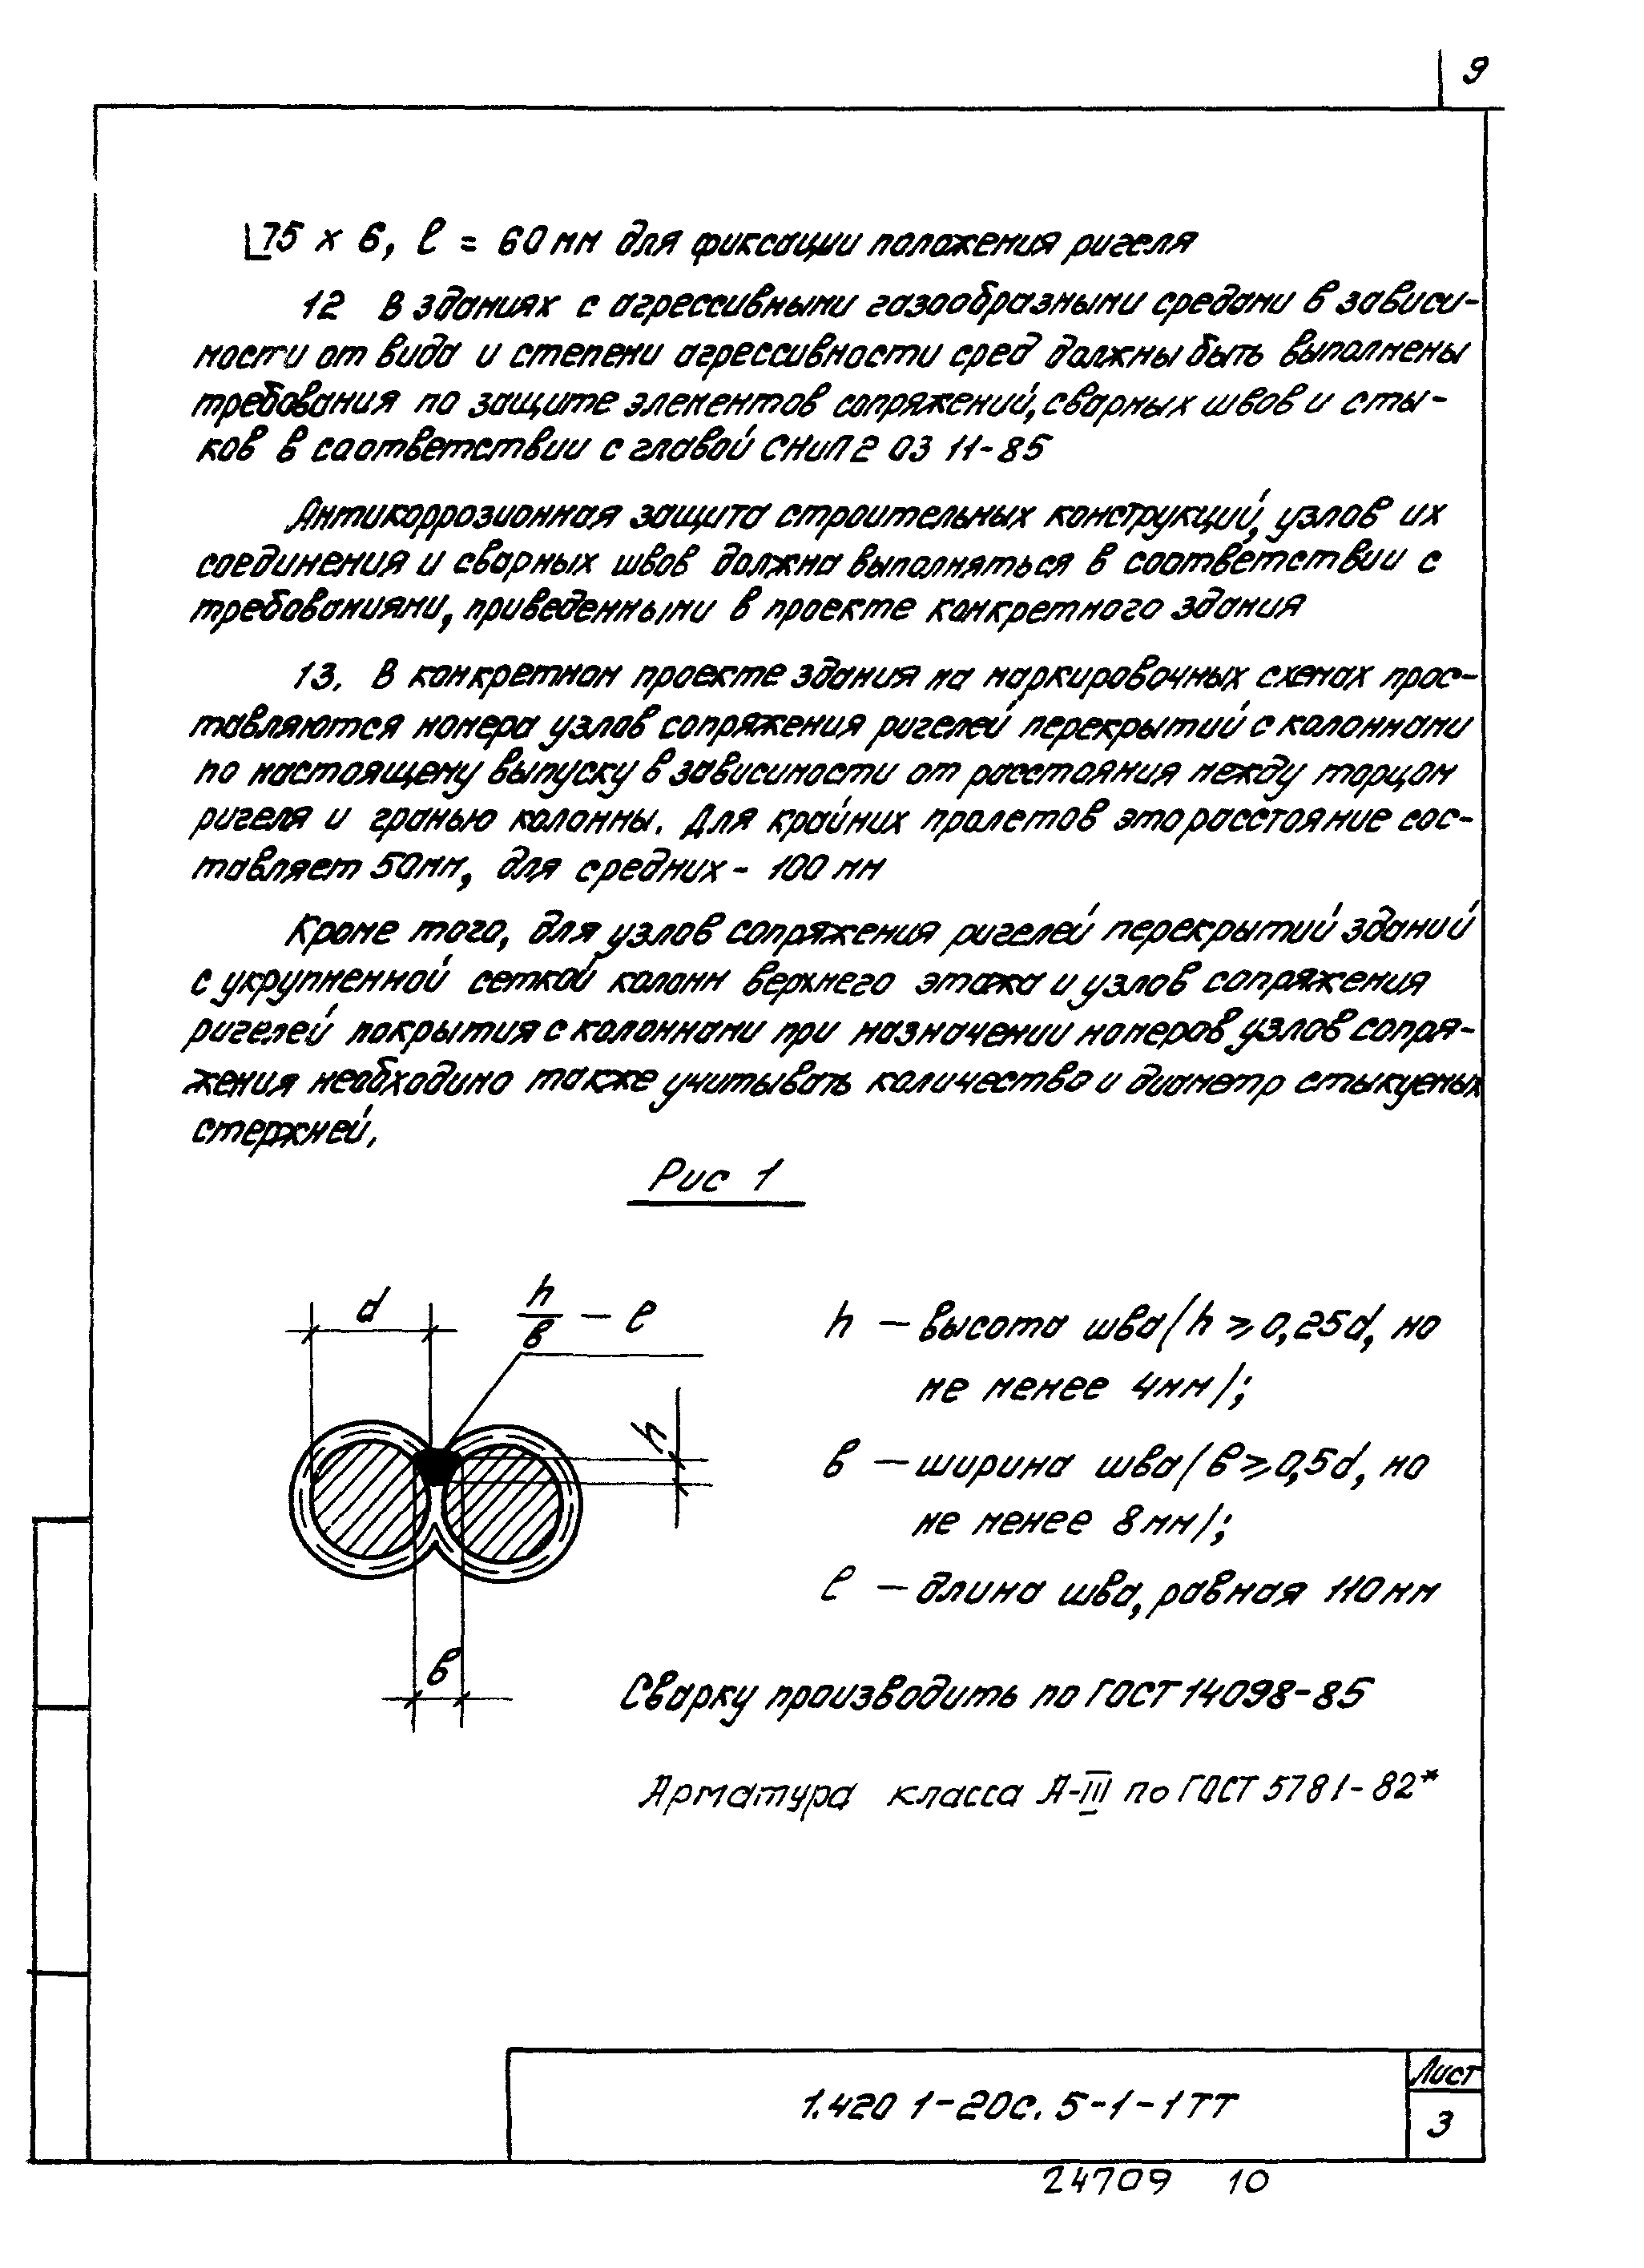 9
∟75 х 6, ℓ = 60 мм для фиксации положения ригеля
12 В зданиях с агрессивными газообразными средами в зависи-
мости от вида и степени агрессивности сред должны быть выполнены
требования по защите элементов сопряжений, сварных швов и сты-
ков в соответствии с главой СНиП 2 03 11-85
Антикоррозионная защита строительных конструкций, узлов их
соединения и сварных швов должна выполняться в соответствии с
требованиями, приведенными в проекте конкретного здания
13. В конкретном проекте здания на маркировочных схемах прос-
тавляются номера узлов сопряжения ригелей перекрытий с колоннами
по настоящему выпуску в зависимости от расстояния между торцом
ригеля и гранью колонны. Для крайних пролетов это расстояние сос-
тавляет 50мм, для средних - 100 мм
Кроме того, для узлов сопряжения ригелей перекрытий зданий
с укрупненной сеткой колонн верхнего этажа и узлов сопряжения
ригелей покрытия с колоннами при назначении номеров узлов сопря-
жения необходимо также учитывать количество и диаметр стыкуемых
стержней.
Рис 1
d
h/в – ℓ
h
в
h – высота шва /h ⩾ 0,25d, но
не менее 4мм/;
в – ширина шва /в ⩾ 0,5d, но
не менее 8мм/;
ℓ – длина шва, равная 110мм
Сварку производить по ГОСТ 14098-85
Арматура класса А-III по ГОСТ 5781-82*
1.420 1-20с. 5-1-1ТТ
Лист
3
24709 10